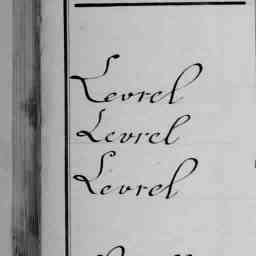 Levrel
Levrel
Levrel